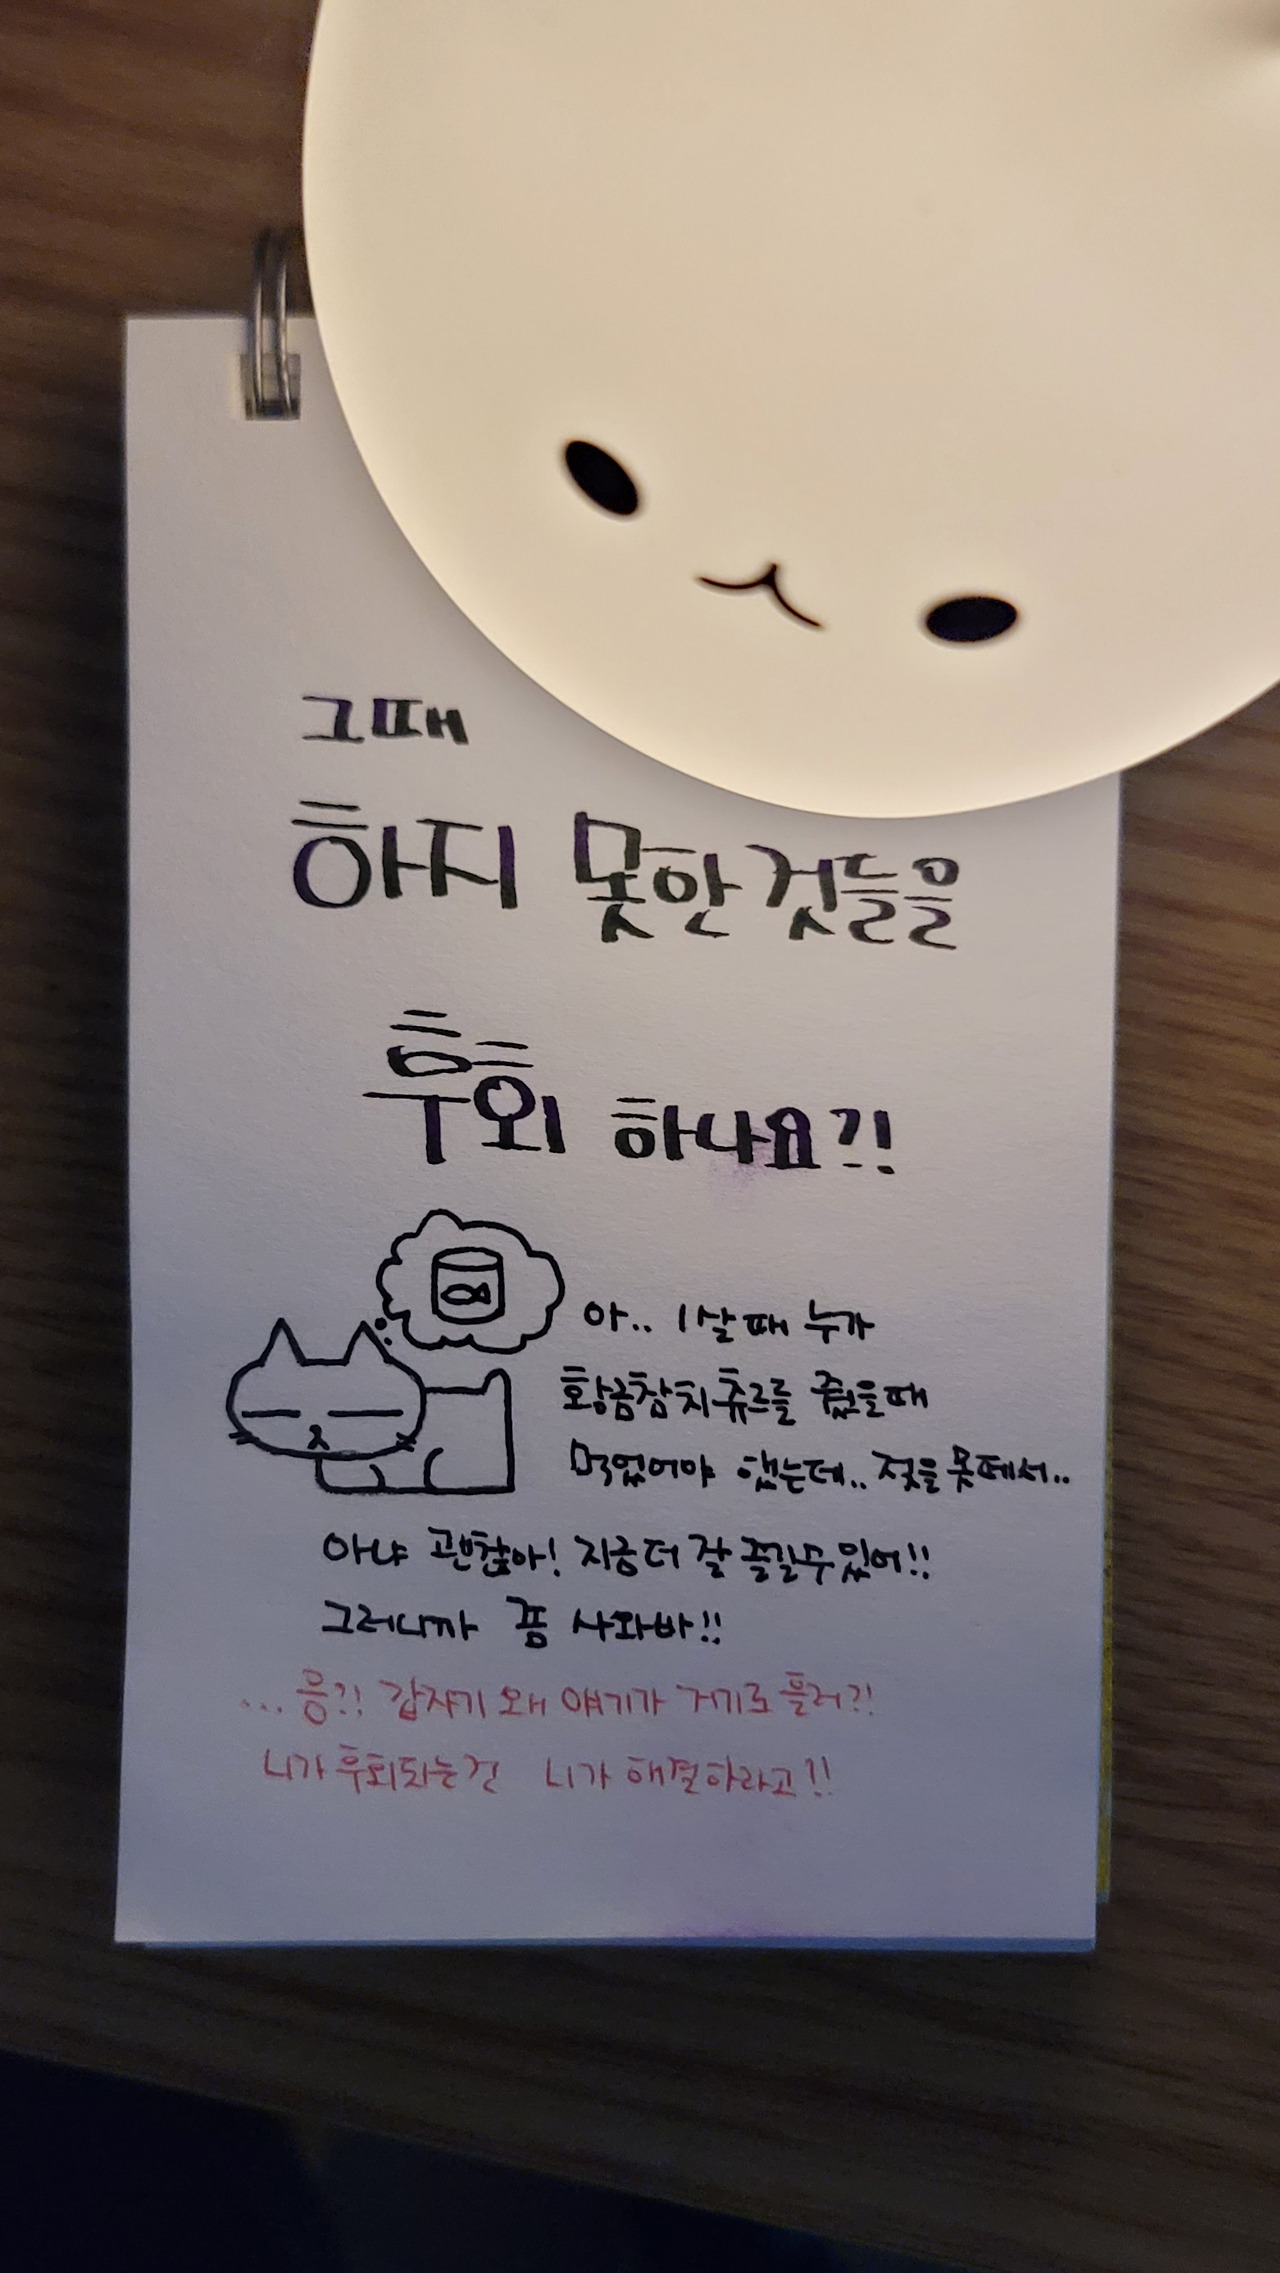 그때
하지 못한 것들을
후회 하나요?!
아.. 1살때 누가
황금참치츄르를 줬을때
먹었어야 했는데.. 젖을 못떼서..
아냐 괜찮아! 지금 더 잘 즐길수 있어!!
그러니까 쫌 사와바!!
... 응?! 갑자기 왜 얘기가 거기로 튈러?!
니가 후회되는건 니가 해결하라고!!